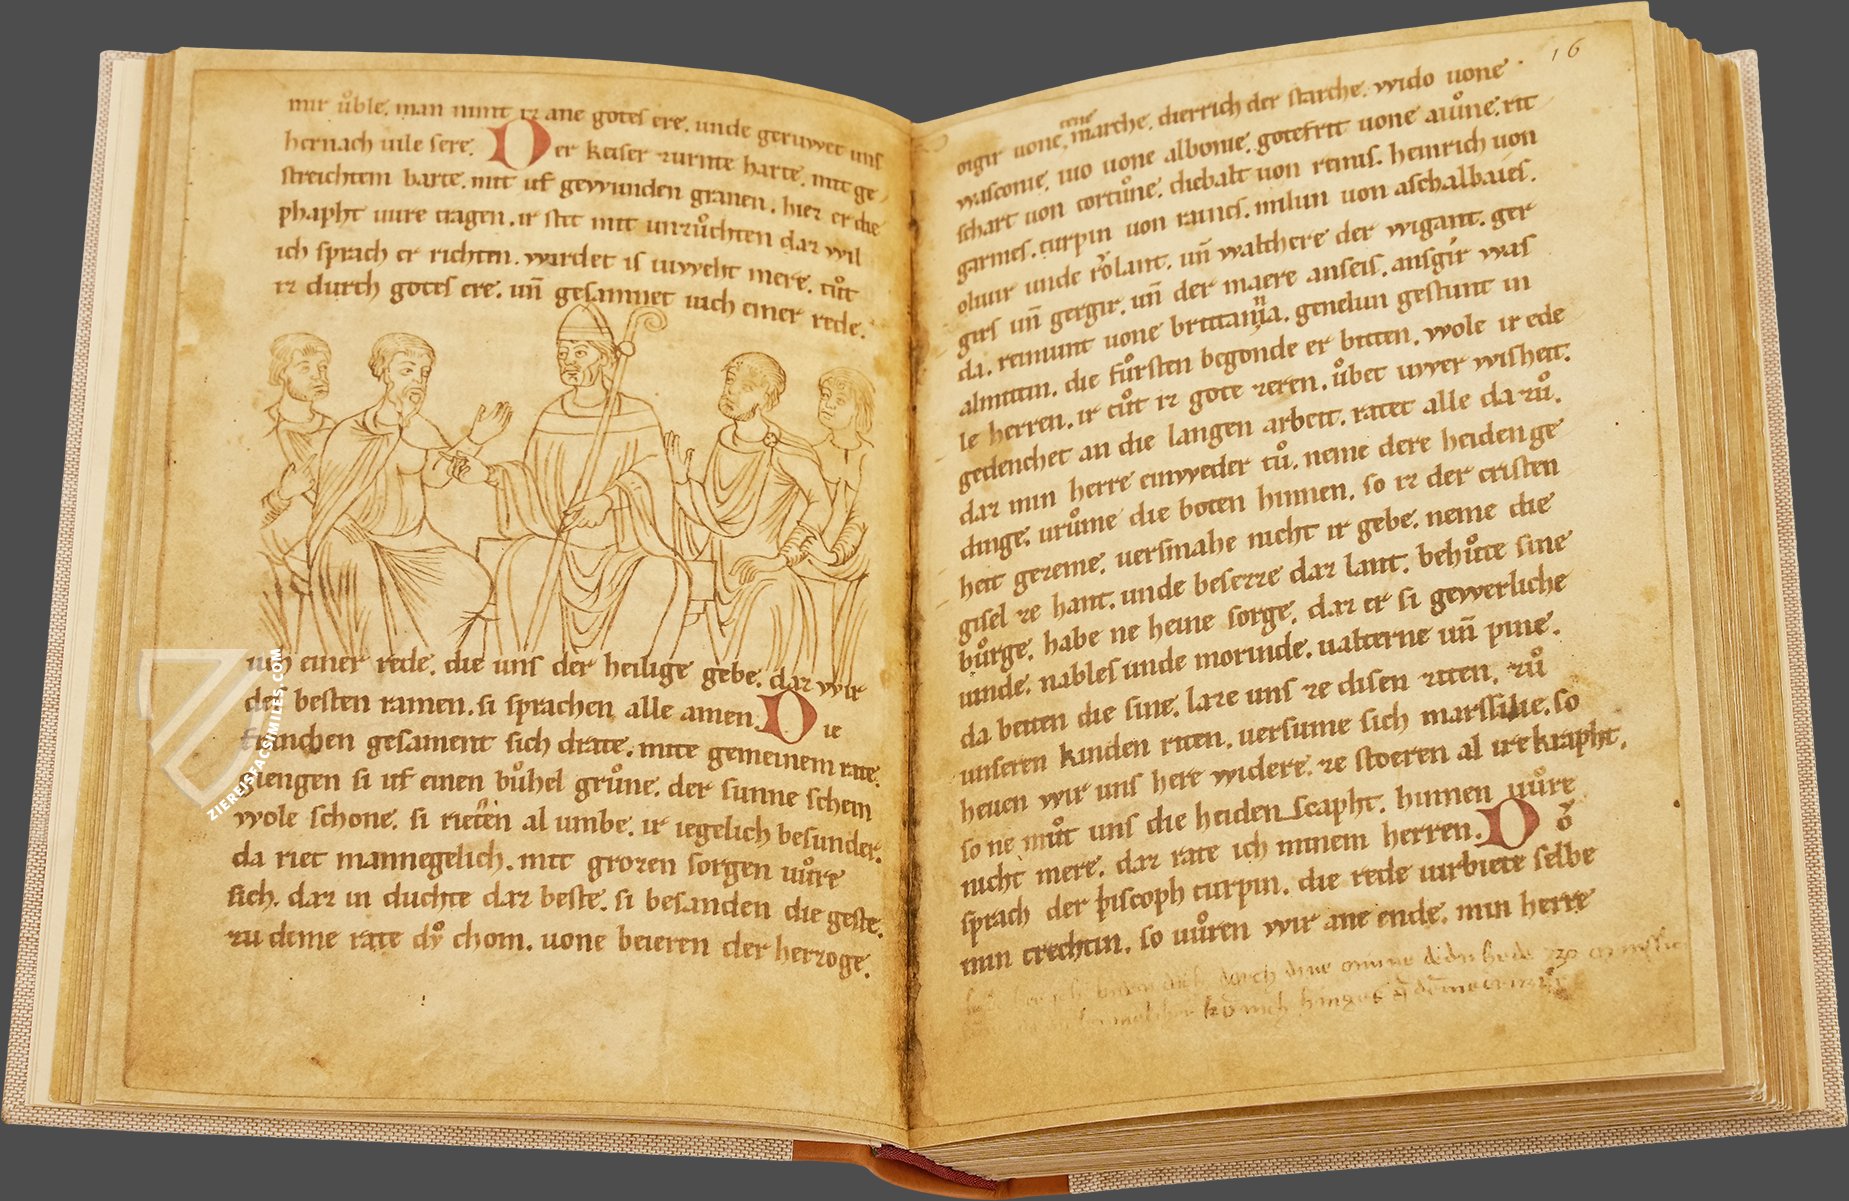 mir uͦble. man nimt iz ane gotes ere. unde geruwet uns
hernach uile sere. Der keiser zurnte harte. mit ge
streichtem barte. mit uf gewunden granen. hiez er die
phapht uure tragen. ir sit mit unzuͦchten daz wil
ich sprach er richten. wirdet is iuweht mere. tuͦt
iz durch gotes ere. uñ gesamnet iuch einer rede.
iuch einer rede. die uns der heilige gebe. daz wir
des besten ramen. si sprachen alle amen. Die
franchen gesament sich drate. mite gemeinem rate.
giengen si uf einen buͦhel gruͦne. der sunne schein
wole schone. si rieten al umbe. ir iegelich besunder.
da riet mannegelich. mit grozen sorgen uuͦre
sich. daz in duchte daz beste. si besanden die geste.
zu deme rate chom. uone beieren der herzoge.
16
oigir uone denemarche. dierrich der starche. wido uone
wasconie. iuo uone albonie. gotefrit uone aiuͦne. rit
schart uon tortuͦne. diebalt uon remis. heinrich uon
garmes. turpin uon raines. milun uon aschalbaies.
oliuir unde roͮlant. uñ walthere der wigant. ger
girs uñ gergir. uñ der maere anseis. ansgir was
da. reimunt uone brittannia. genelun gestunt in
almitten. die fuͦrsten begonde er bitten. wole ir ede
le herren. ir tuͦt iz gote zeren. uͦbet uwer wisheit.
gedenchet an die langen arbeit. ratet alle da zuͦ.
daz min herre einweder tuͦ. neme dere heiden ge
dinge. uruͦme die boten hinnen. so iz der cristen
heit gezeme. uersmahe nicht ir gebe. neme die
gisel ze hant. unde besezze daz lant. behuͦte sine
buͦrge. habe ne heine sorge. daz er si gewerliche
uinde. nables unde morinde. ualterne uñ pine.
da beiten die sine. laze uns ze disen ziten. zuͦ
unseren kinden riten. uersume sich marssilie. so
heuen wir uns here widere. ze stoeren al ire krapht.
so ne muͦt uns die heiden scapht. hinnen uuͦre
nicht mere. daz rate ich minem herren. Do
sprach der piscoph turpin. die rede uirbiete selbe
min trechtin. so uuͦren wir ane ende. min herre
ZIEREISFACSIMILES.COM